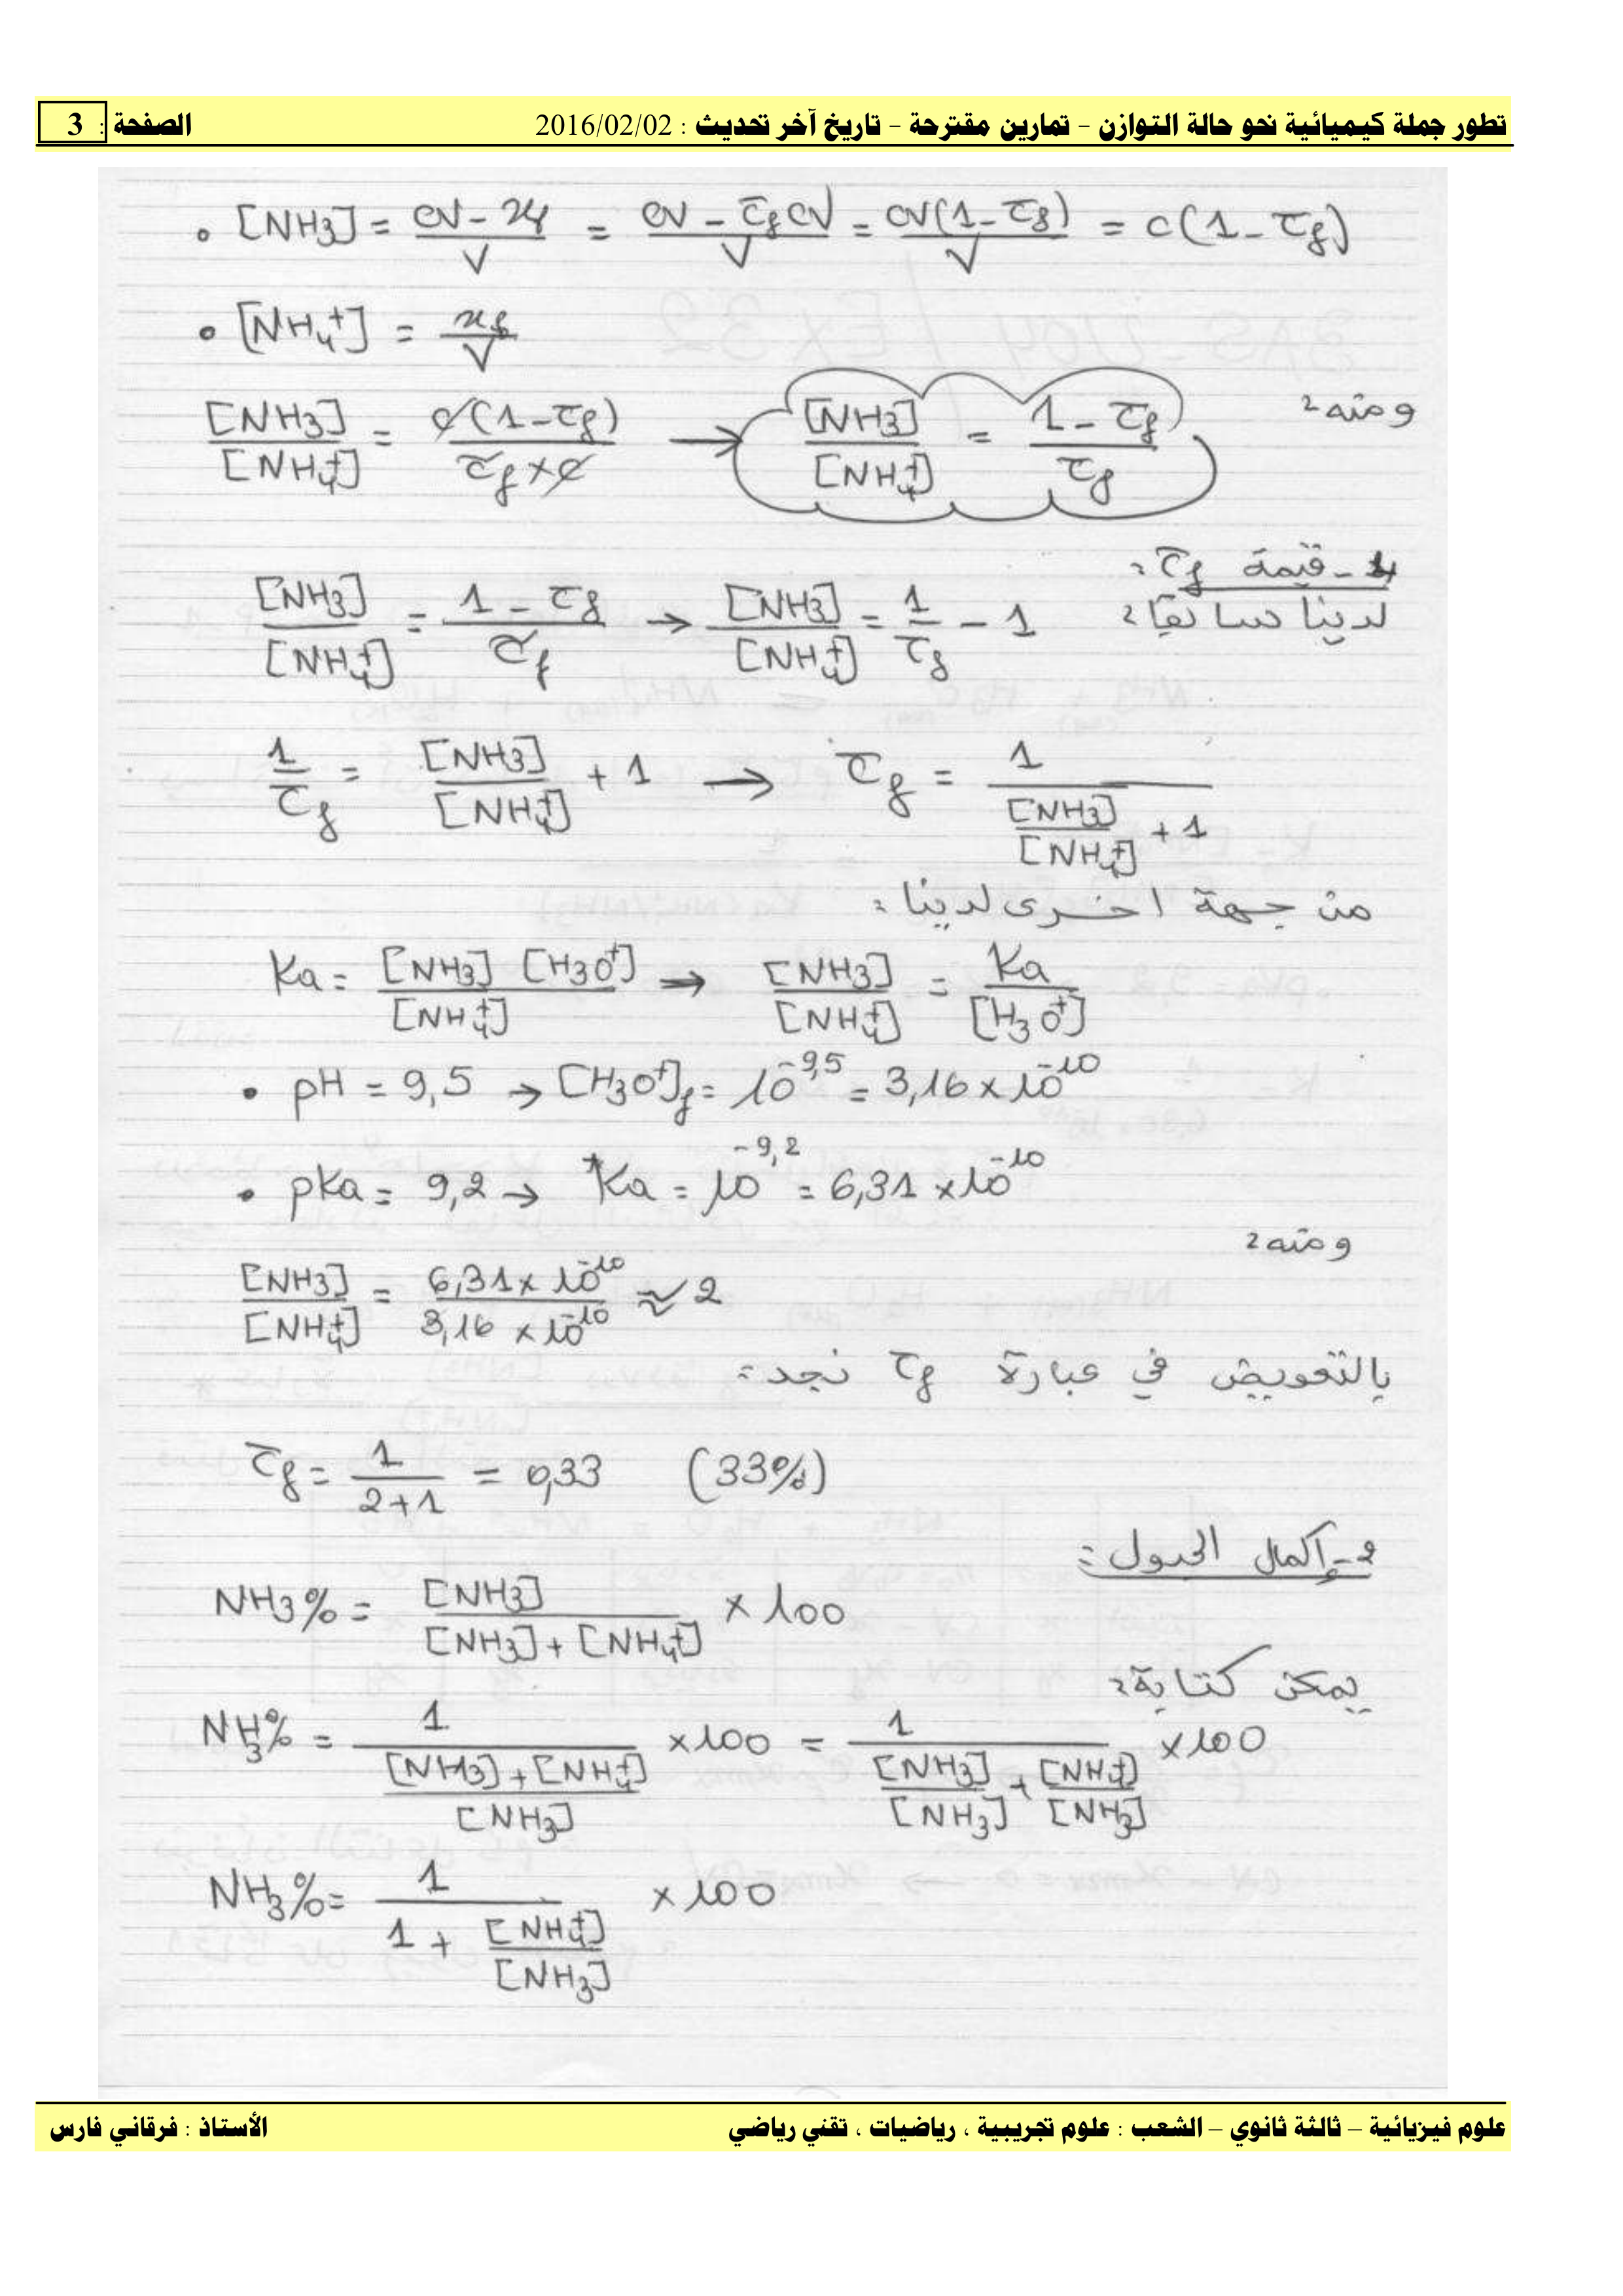 تطور جملة كيميائية نحو حالة التوازن – تمارين مقترحة – تاريخ آخر تحديث : 2016/02/02 الصفحة : 3
• [NH3] = (cV - xf)/V = (cV - τf cV)/V = cV(1 - τf)/V = c(1 - τf)
• [NH4+] = xf/V
ومنه :
[NH3]/[NH4+] = c(1 - τf)/(τf × c) → [NH3]/[NH4+] = (1 - τf)/τf
1 - قيمة τf :
لدينا سابقا :
[NH3]/[NH4+] = (1 - τf)/τf → [NH3]/[NH4+] = 1/τf - 1
1/τf = [NH3]/[NH4+] + 1 → τf = 1/([NH3]/[NH4+] + 1)
من جهة اخرى لدينا :
Ka = [NH3][H3O+]/[NH4+] → [NH3]/[NH4+] = Ka/[H3O+]
• pH = 9,5 → [H3O+]f = 10^-9,5 = 3,16 × 10^-10
• pKa = 9,2 → Ka = 10^-9,2 = 6,31 × 10^-10
ومنه :
[NH3]/[NH4+] = 6,31 × 10^-10 / 3,16 × 10^-10 ≈ 2
بالتعويض في عبارة τf نجد :
τf = 1/(2+1) = 0,33 (33%)
2 - إكمال الجدول :
NH3% = [NH3]/([NH3] + [NH4+]) × 100
يمكن كتابة :
NH3% = 1/(([NH3] + [NH4+])/[NH3]) × 100 = 1/([NH3]/[NH3] + [NH4+]/[NH3]) × 100
NH3% = 1/(1 + [NH4+]/[NH3]) × 100
علوم فيزيائية – ثالثة ثانوي – الشعب : علوم تجريبية ، رياضيات ، تقني رياضي الأستاذ : فرقاني فارس